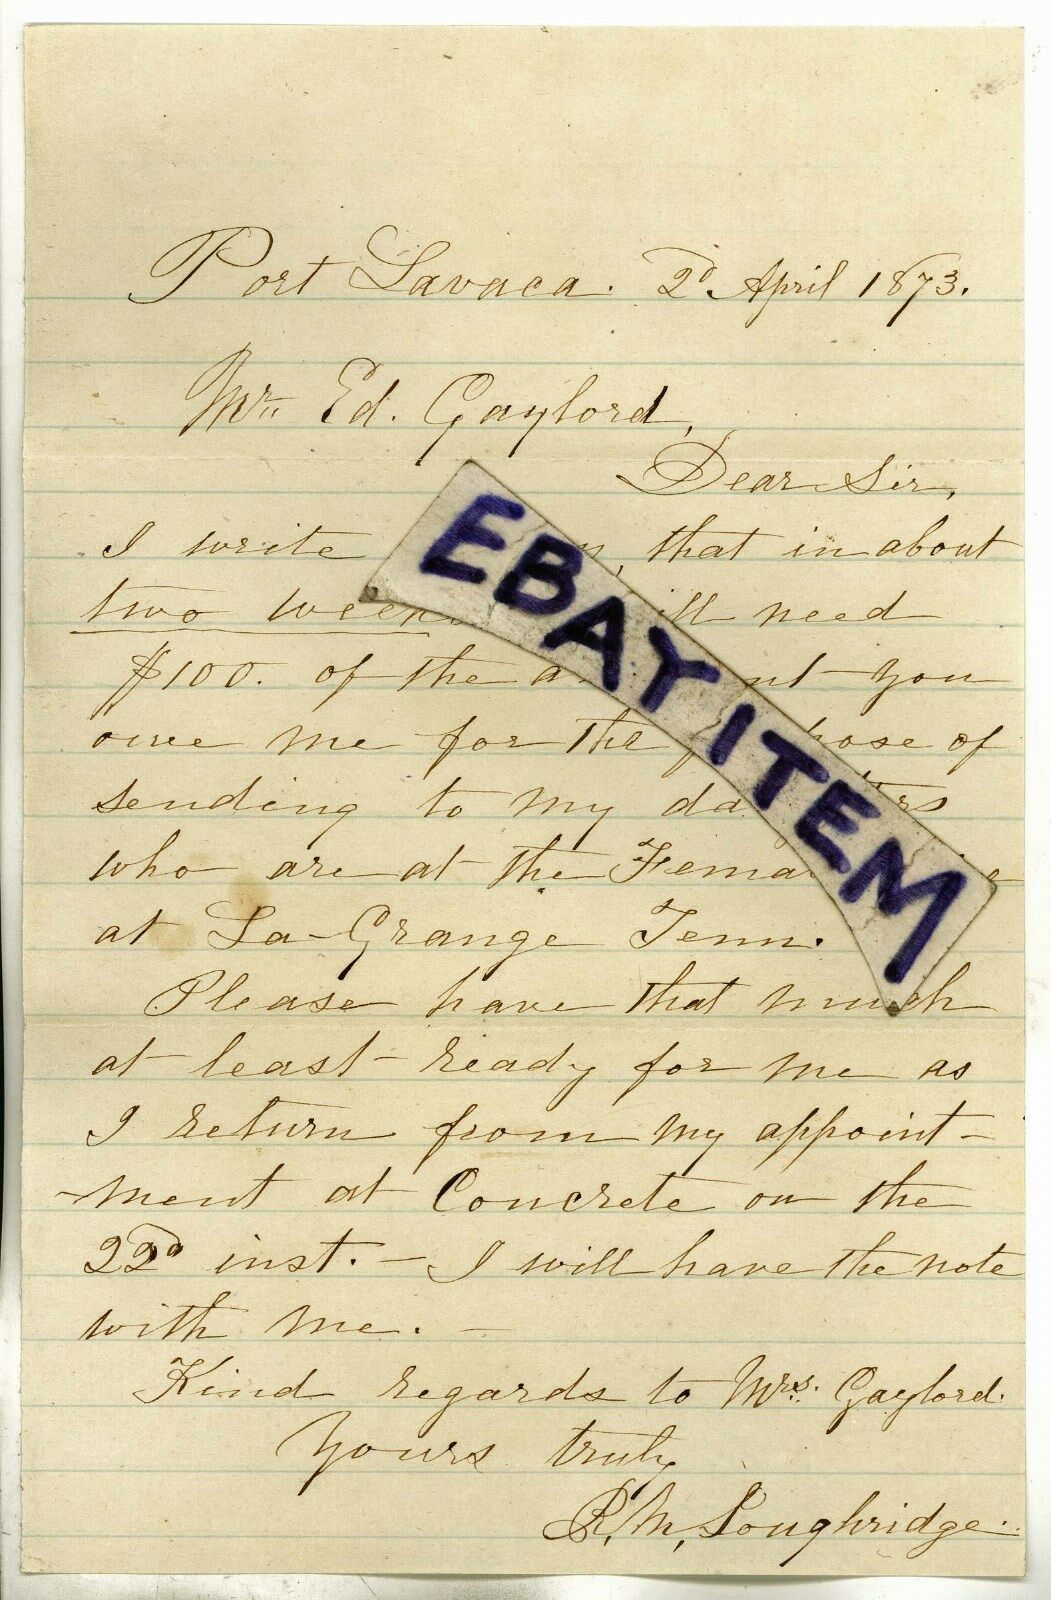 Port Lavaca. 2d. April 1873.
Mr. Ed. Gaylord,
Dear Sir,
I write that in about
two week ill need
$100. of the a nt you
owe me for the p pose of
sending to my da ters
who are at the Fema
at La-Grange Tenn.
Please have that much
at least ready for me as
I return from my appoint-
-ment at Concrete on the
22d inst. - I will have the note
with me. -
Kind regards to Mrs. Gaylord.
Yours truly
R. M. Loughridge.
EBAY ITEM